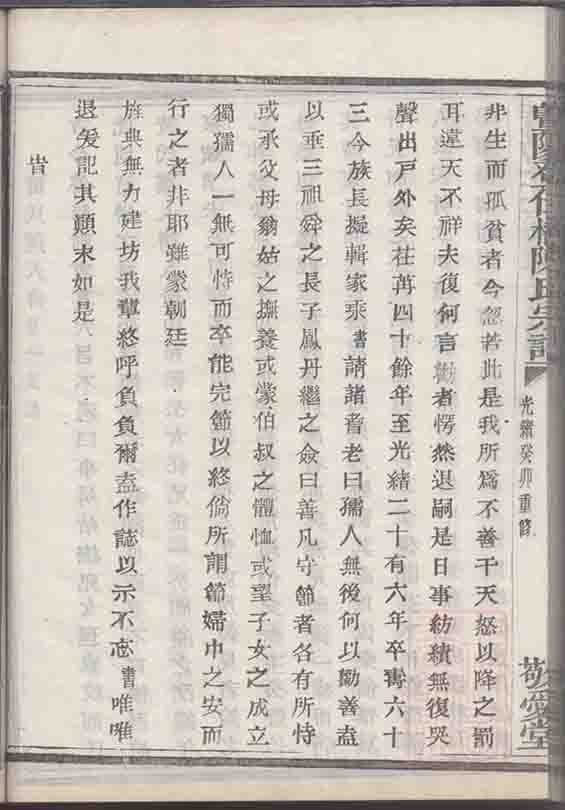 宗譜
光緒癸卯重修
敬愛堂
非生而孤貧者今忽若此是我所為不善干天怒以降之罰
耳違天不祥夫復何言勸者愕然退嗣是日事紡績無復哭
聲出戶外矣荏苒四十餘年至光緒二十有六年卒壽六十
三今族長擬輯家乘書請諸耆老曰孺人無後何以勸善盍
以垂三祖舜之長子鳳丹繼之僉曰善凡守節者各有所恃
或承父母翁姑之撫養或蒙伯叔之體恤或望子女之成立
獨孺人一無可恃而卒能完節以終倘所謂節婦中之安而
行之者非耶雖蒙朝廷
旌典無力建坊我輩終呼負負爾盍作誌以示不忘書唯唯
退爰記其顛末如是